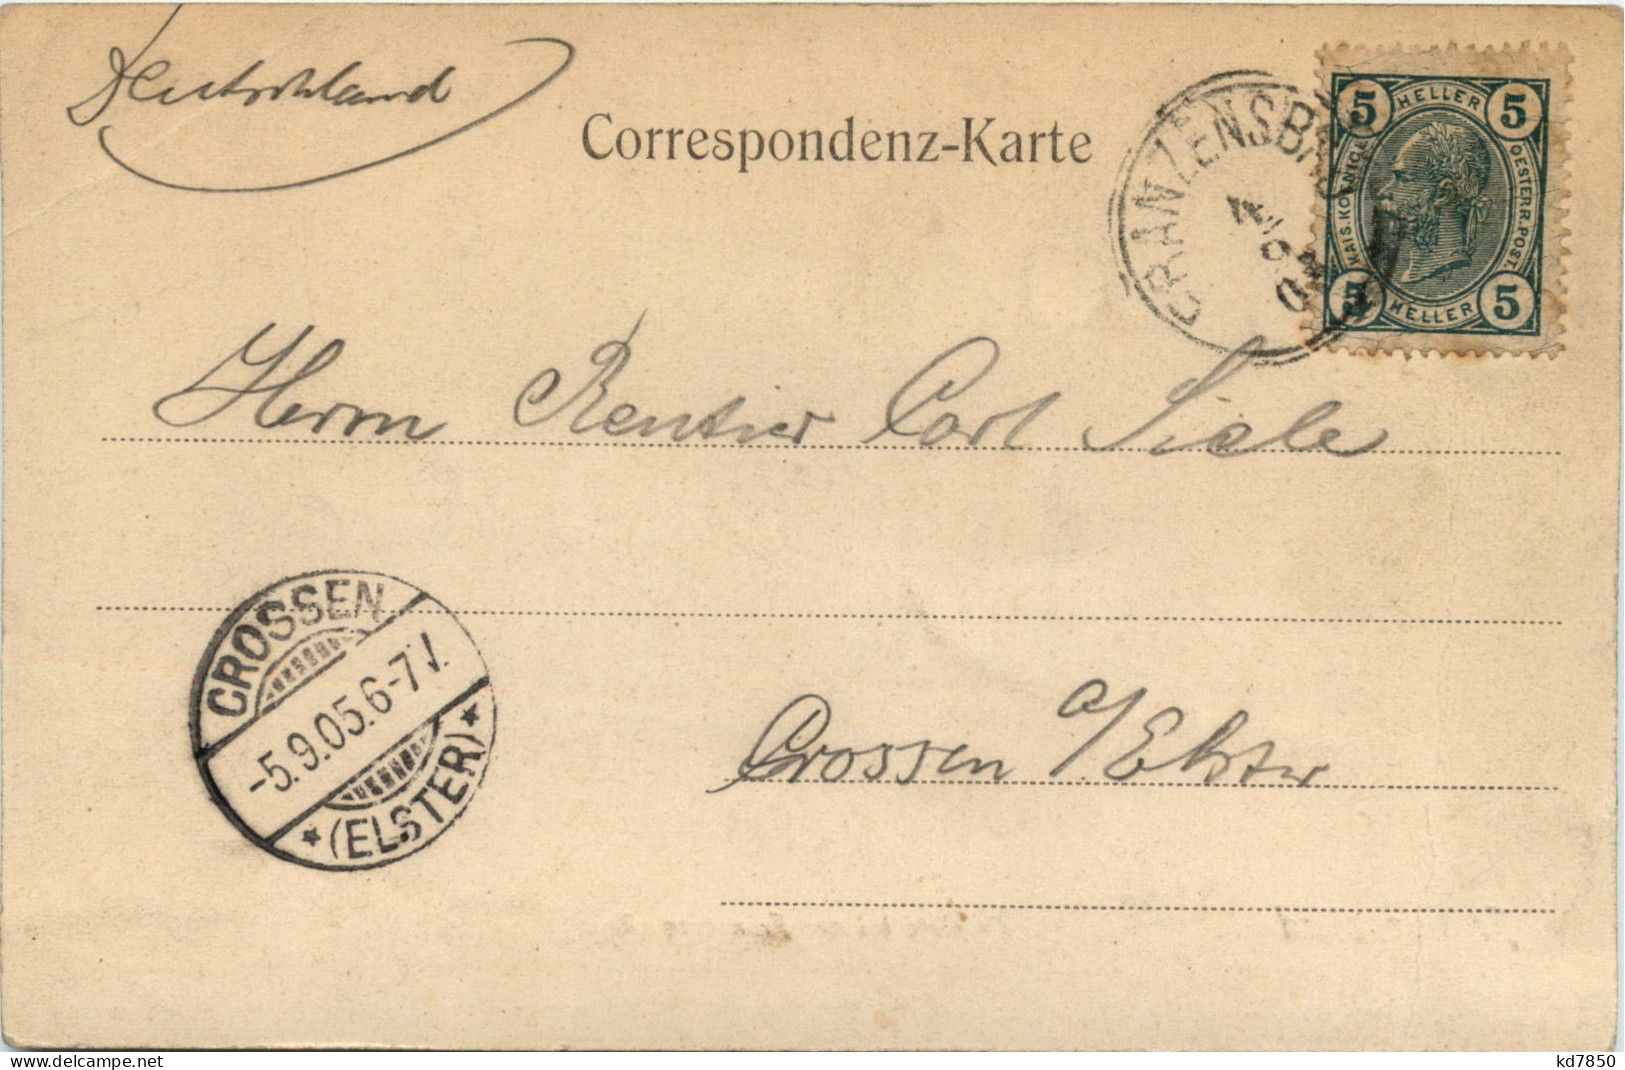 Deutschland
Correspondenz-Karte
5 HELLER 5
KAIS. KÖNIGL.
OESTERR. POST.
5 HELLER 5
FRANZENSBAD
Herrn Rentier Carl Siele
CROSSEN
-5.9.05.6-7V.
*(ELSTER)*
Crossen a/Elster
www.delcampe.net
kd7850